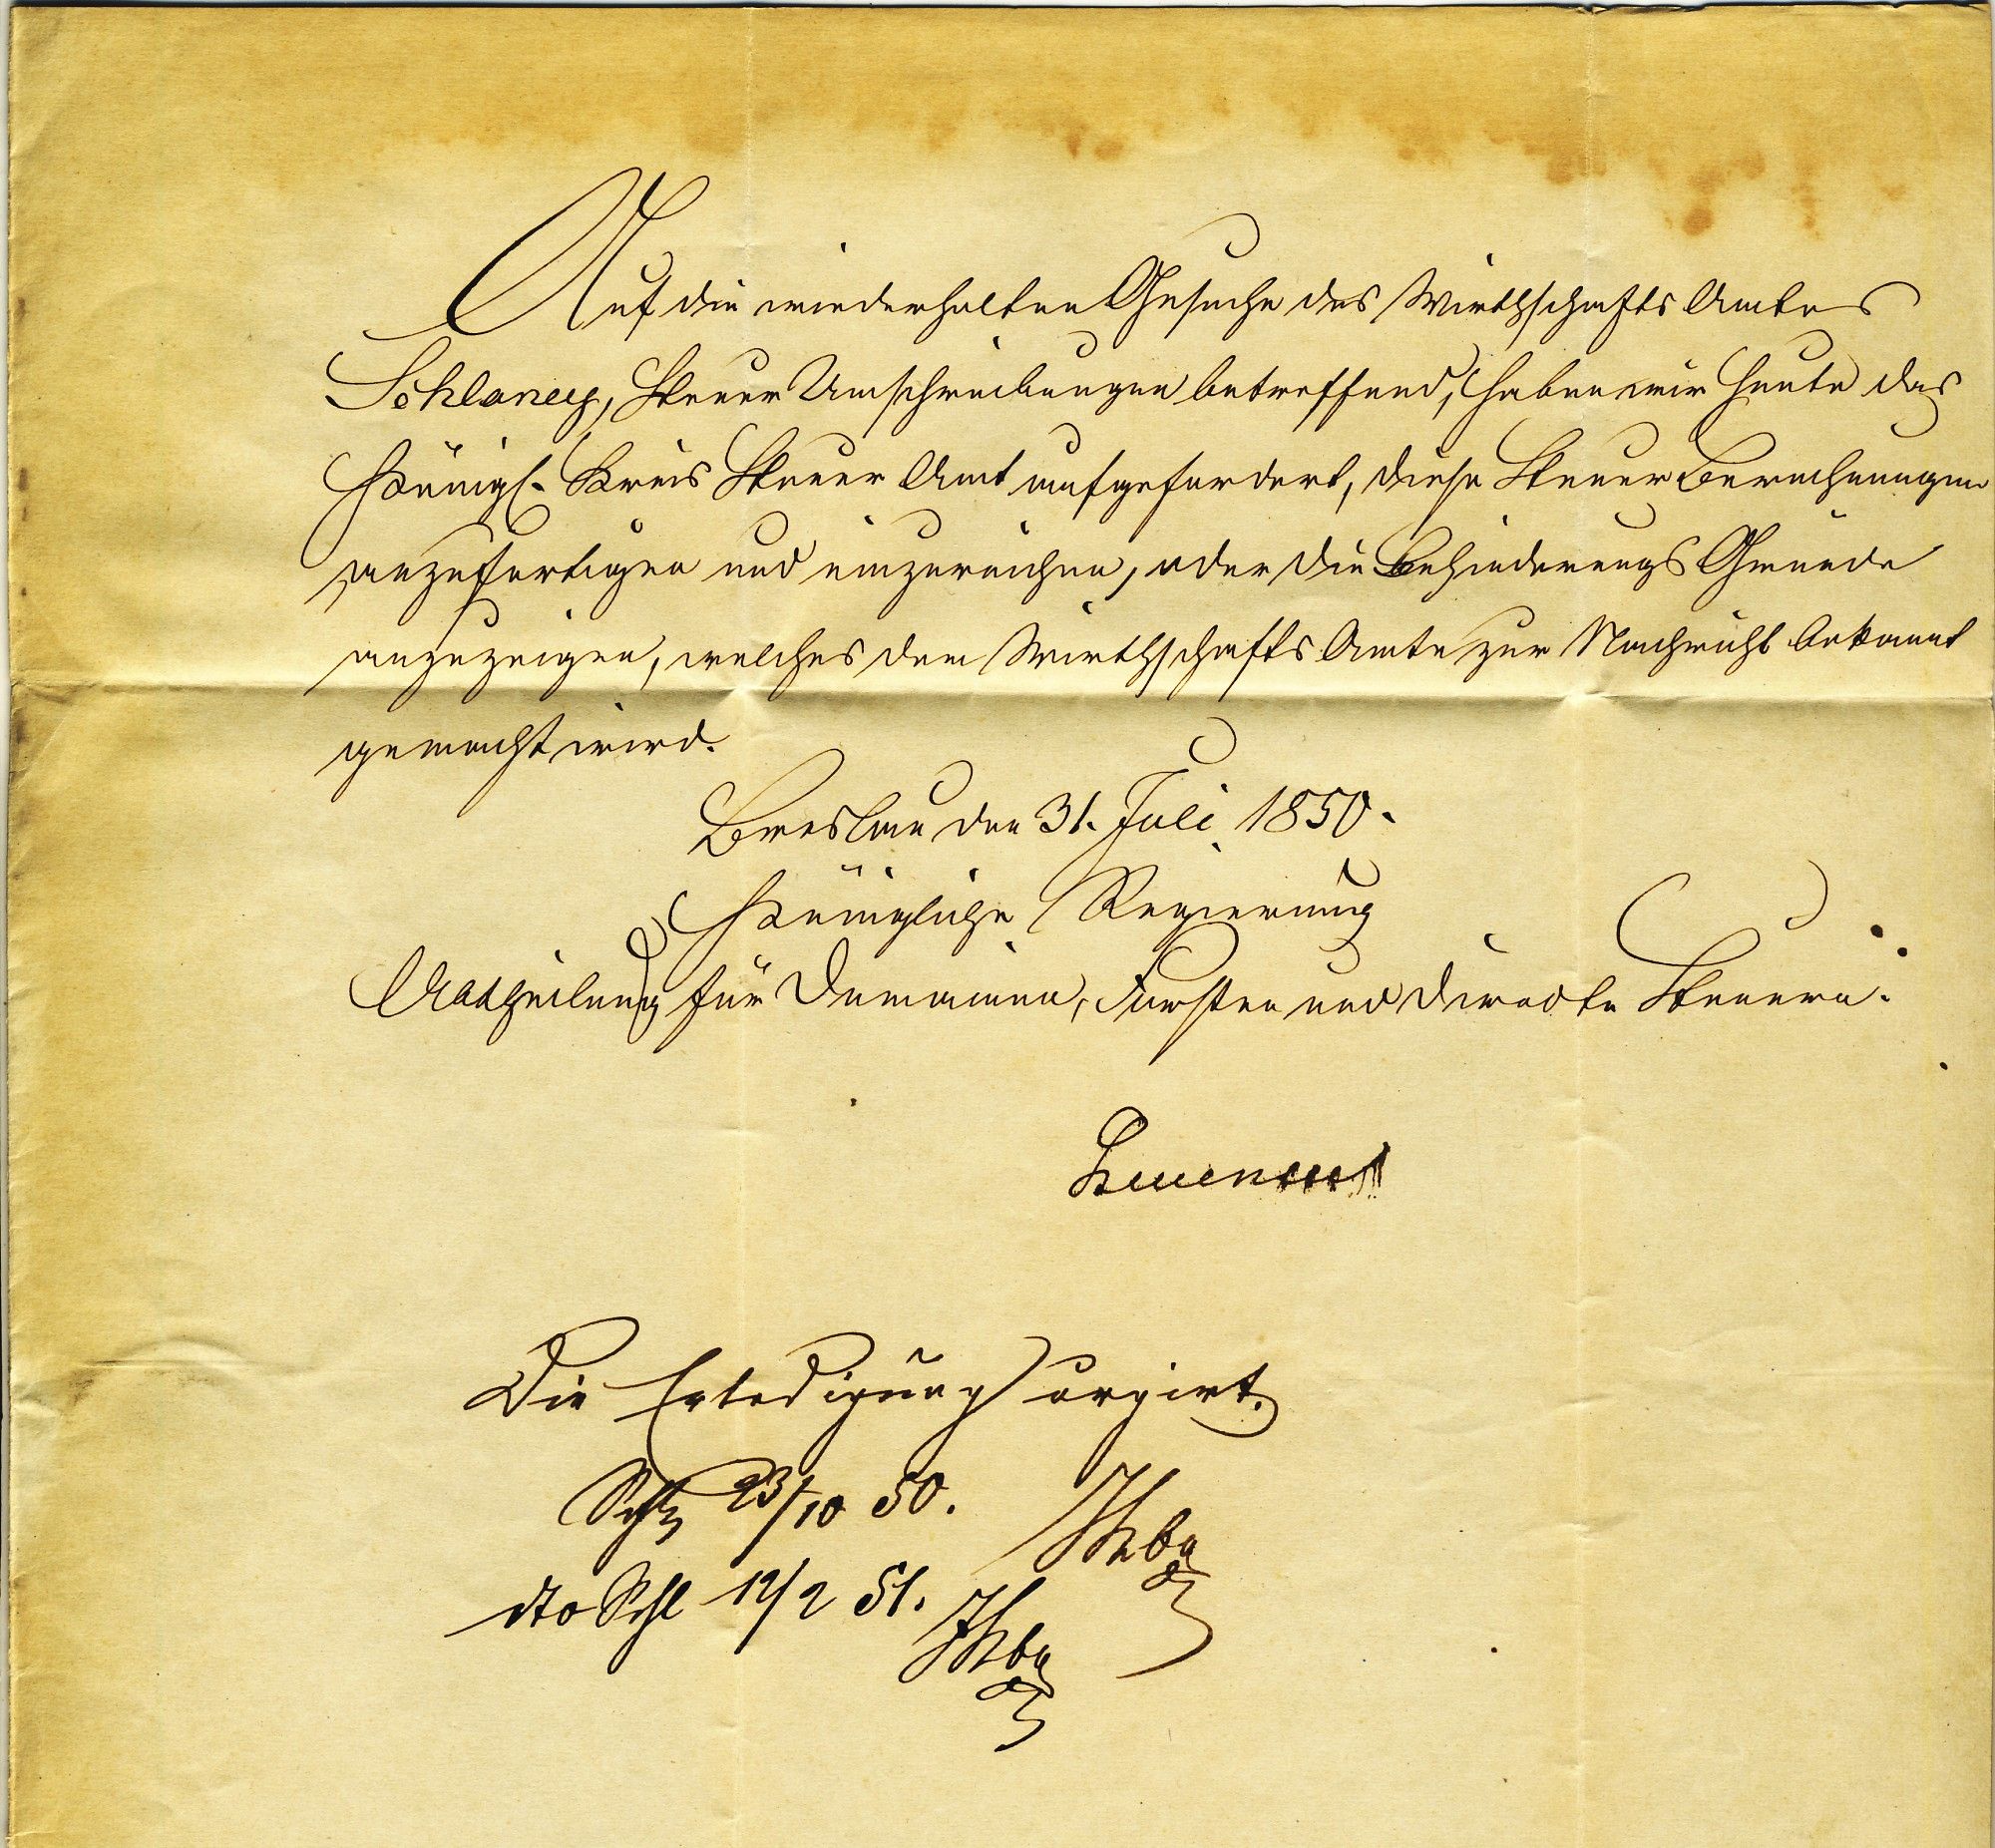 Auf die wiederholten Gesuche des Wirthschafts Amtes
Schlaney, Steuer Umschreibungen betreffend, haben wir heute das
Königl. Kreis Steuer Amt aufgefordert, diese Steuer Berechnungen
anzufertigen und einzureichen, oder die Behinderungs Gründe
anzuzeigen, welches dem Wirthschafts Amte zur Nachricht bekannt
gemacht wird.
Breslau den 31. Juli 1850.
Königliche Regierung
Abtheilung für Domainen, Forsten und directe Steuern.
Die Erledigung urgirt.
23/10 50.
dto Schl 12/2 51.